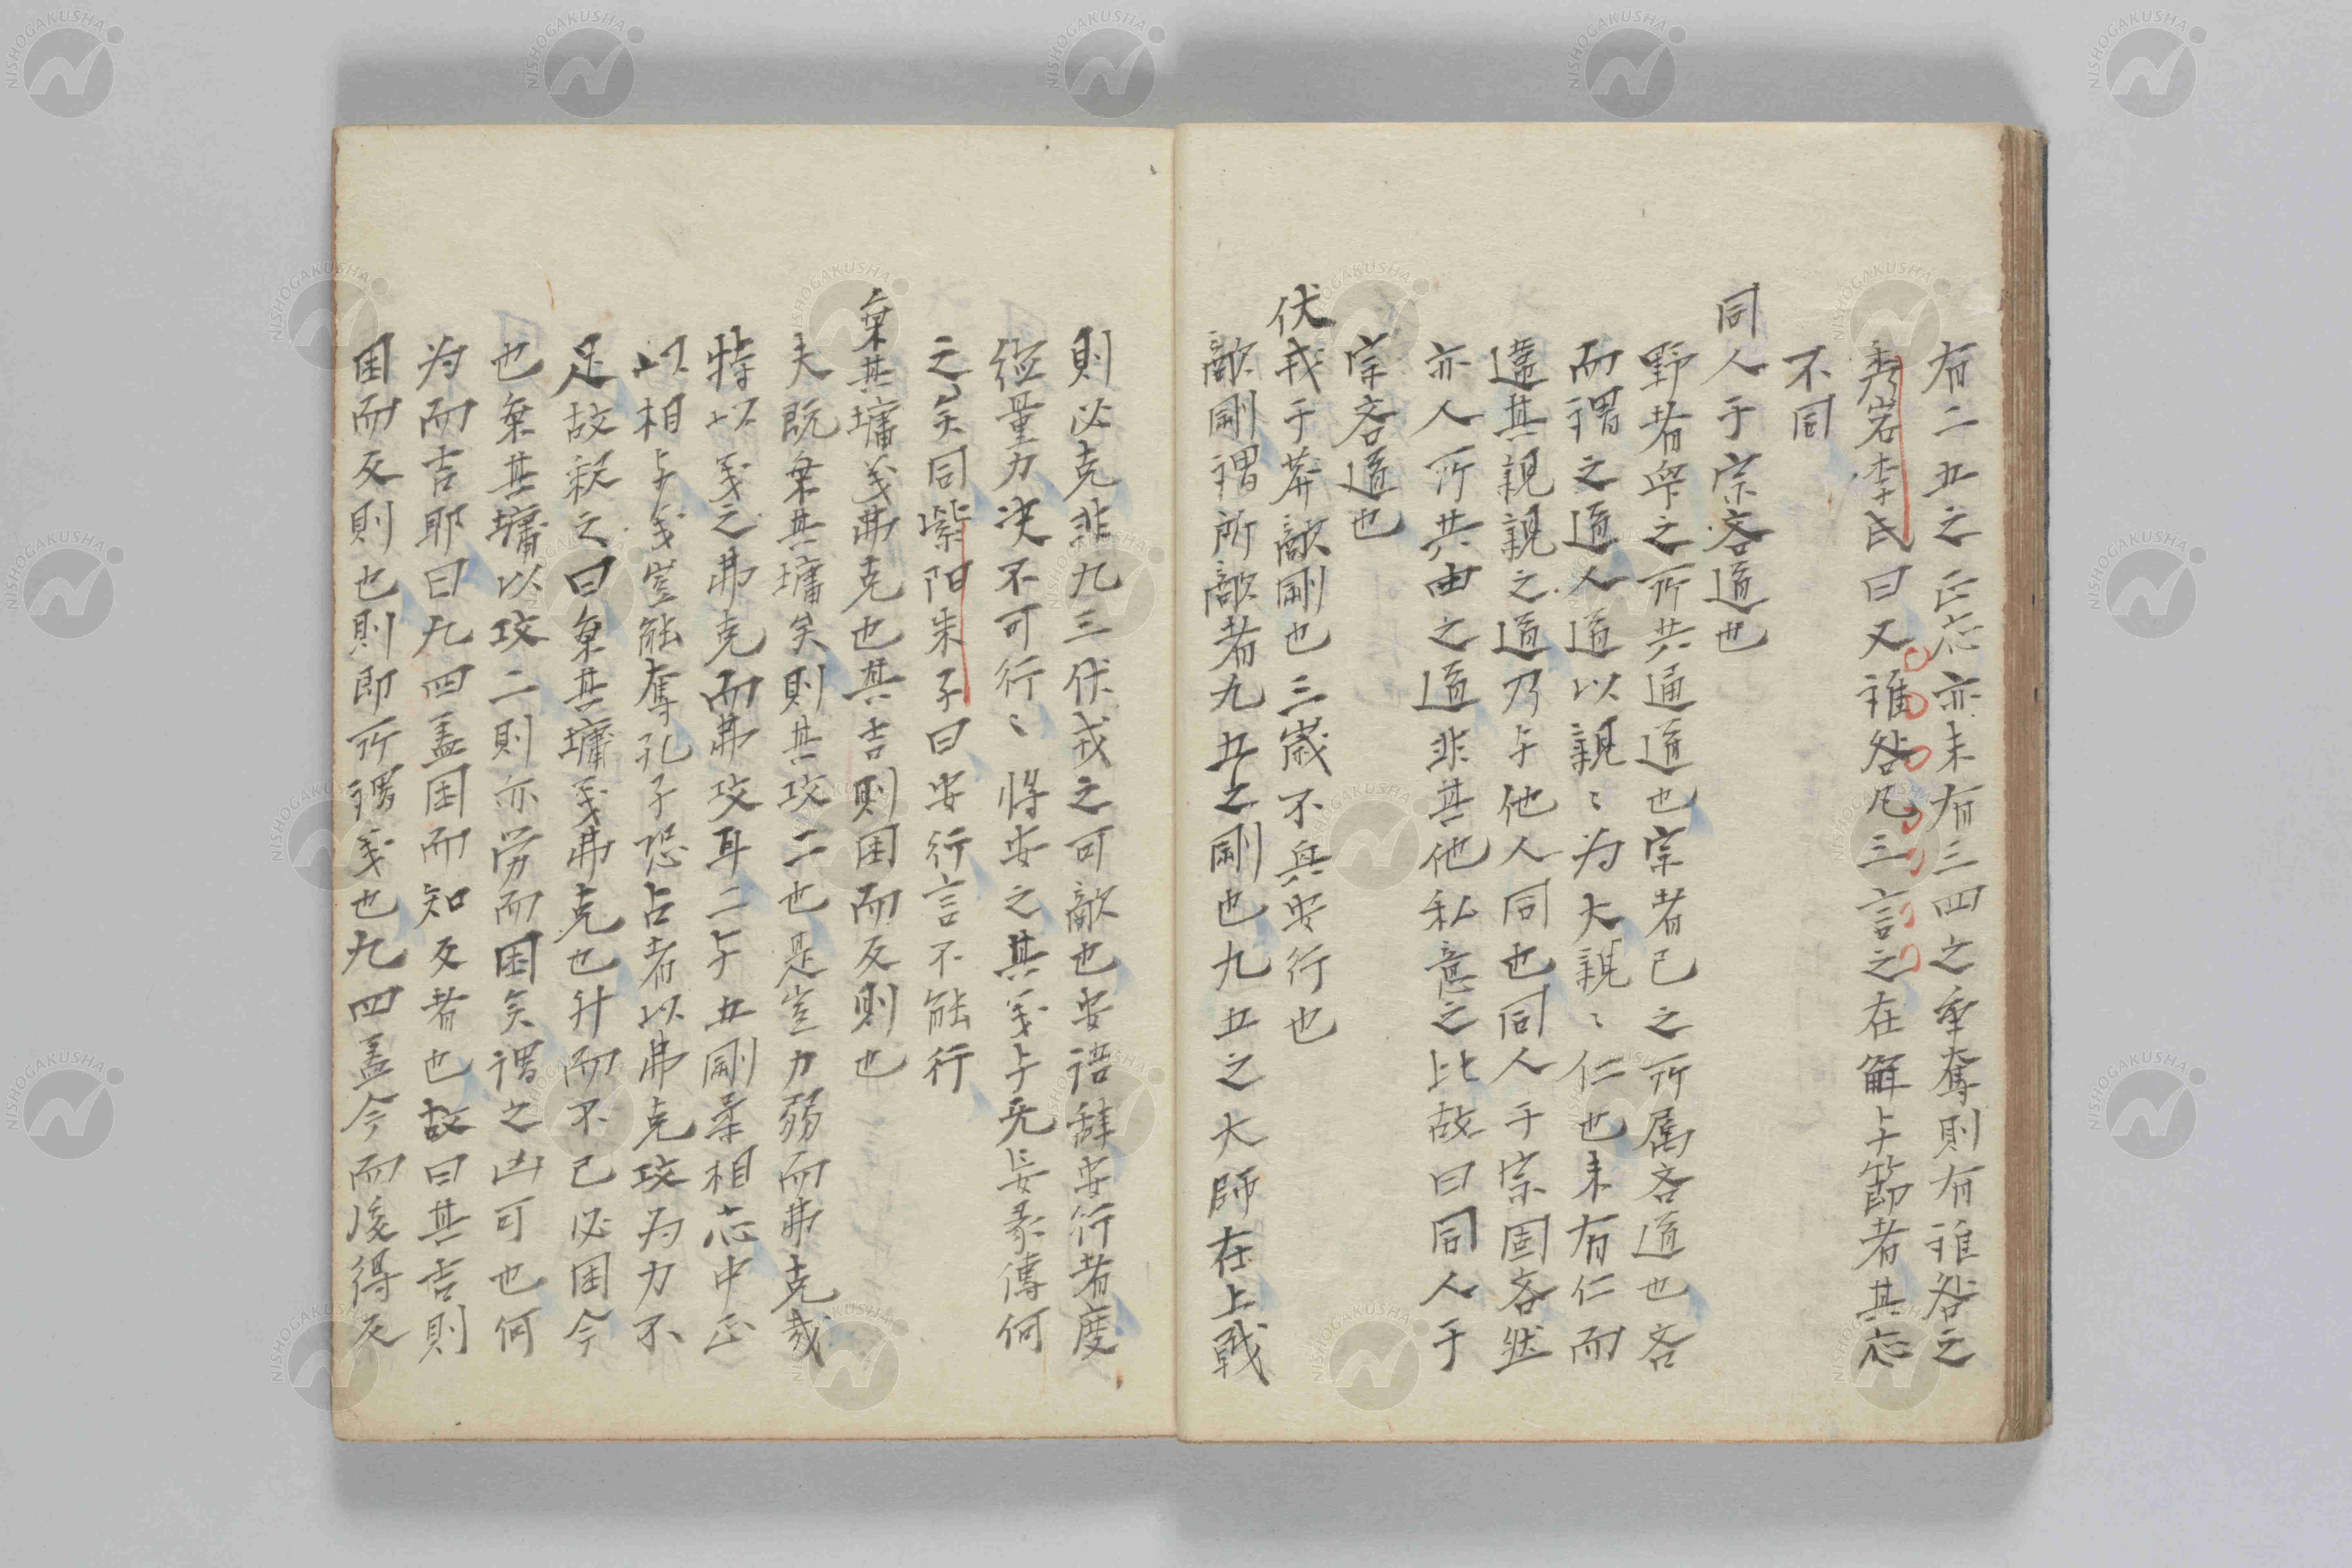 有二五之正応亦未有三四之争奪則有誰咎之
秀岩李氏曰又誰咎凡三言之在解与節者其応
不同
同人于宗吝道也
野者衆之所共通道也宗者已之所属吝道也吝
而謂之道人道以親〻為大親〻仁也未有仁而
遺其親親之道乃与他人同也同人于宗固吝然
亦人所共由之道非其他私意之比故曰同人于
宗吝道也
伏戎于莽敵剛也三歳不興安行也
敵剛謂所敵者九五之剛也九五之大師在上戦
則必克非九三伏戎之可敵也安語辞安行者度
徳量力决不可行〻将安之其义与无妄彖傳何
之矣同紫阳朱子曰安行言不能行
棄其墉义弗克也其吉則困而反則也
夫既棄其墉矣則其攻二也是豈力弱而弗克哉
特以义之弗克而弗攻耳二与五剛柔相応中正
以相与义豈能奪孔子恐占者以弗克攻为力不
足故釈之曰棄其墉义弗克也升而不已必困今
也棄其墉以攻二則亦労而困矣謂之凶可也何
为而吉耶曰九四盖困而知反者也故曰其吉則
困而反則也則即所謂义也九四盖今而後得反